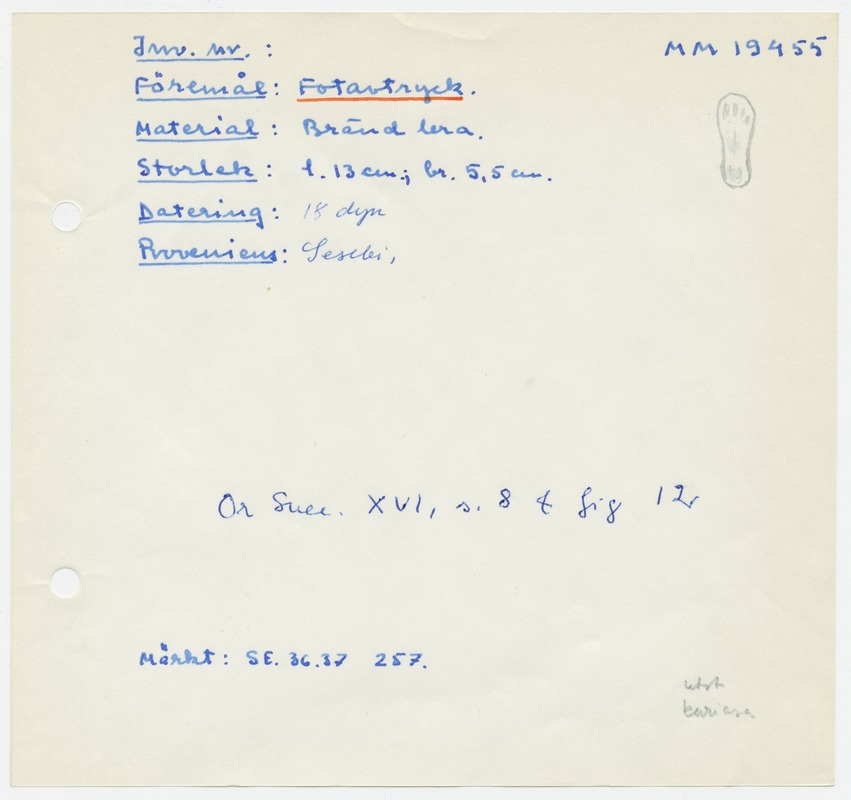 Inv. nr. : MM 19455
Föremål: Fotavtryck.
Material : Bränd lera.
Storlek : l. 13 cm.; br. 5,5 cm.
Datering : 18 dyn
Proveniens: Sesebi,
Or Suec. XVI, s. 8 & fig 12
Märkt: SE. 36.37 257.
utst